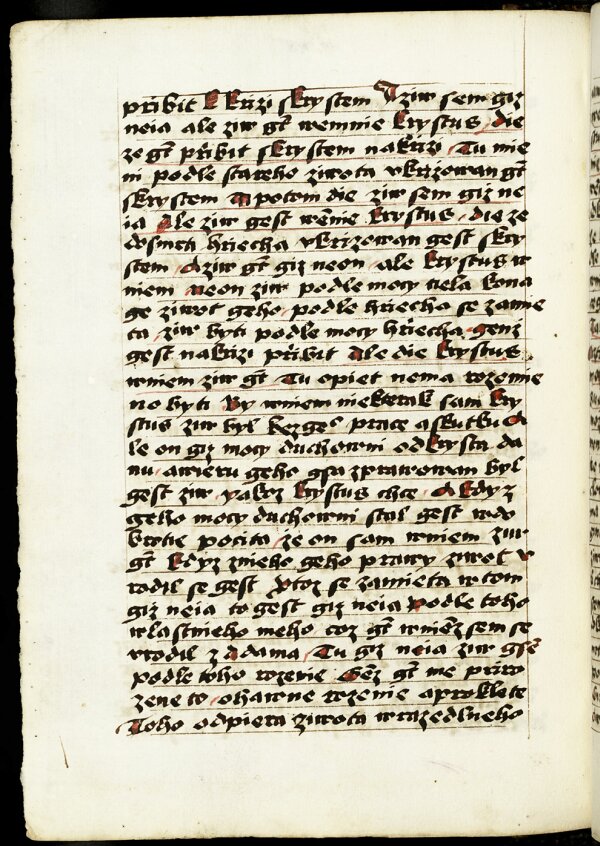 přibit k krizi skrystem A ziw sem giz
neia ale ziw gt wemnie krystus die
ze gt přibit skrystem nakrizi Tu mie
ni podle stareho ziwota vkrizowan gt
skrystem A potom die ziw sem giz ne
ia Ale ziw gest wemnie krystus die ze
hriecha vkrizowan gest skry
stem A ziw gt giz neon ale krystus w
niem Neon ziw podle mocy tiela kona
ge ziwot geho podle hriecha se zamie
ta ziw byti podle mocy hřiecha genz
gest nakrizi přibit Ale die krystus
wniem ziw gt Tu opiet nema rozumie
no byti by wniem niekterak sam kry
stus ziw byl bezgeo prace askutku A
le on giz mocy duchowni odkrysta da
nu awieru geho gsa zprawowan byl
gest ziw yakz krystus chce A kdyz
geho mocy duchowni stal gest wdo
brotie pocita ze on sam wniem ziw
gt kdyz znieho geho prawy ziwot v
rodil se gest Protoz se zamieta wtom
giz neia to gest giz neia podle toho
wlastnieho meho coz gt wniemz sem se
vrodil zadama Tu giz neia ziw gse
podle toho rozenie Genz gt me přiro
zene to ohawne rozenie aproklete
Toho odpiera ziwota wrazedlneho